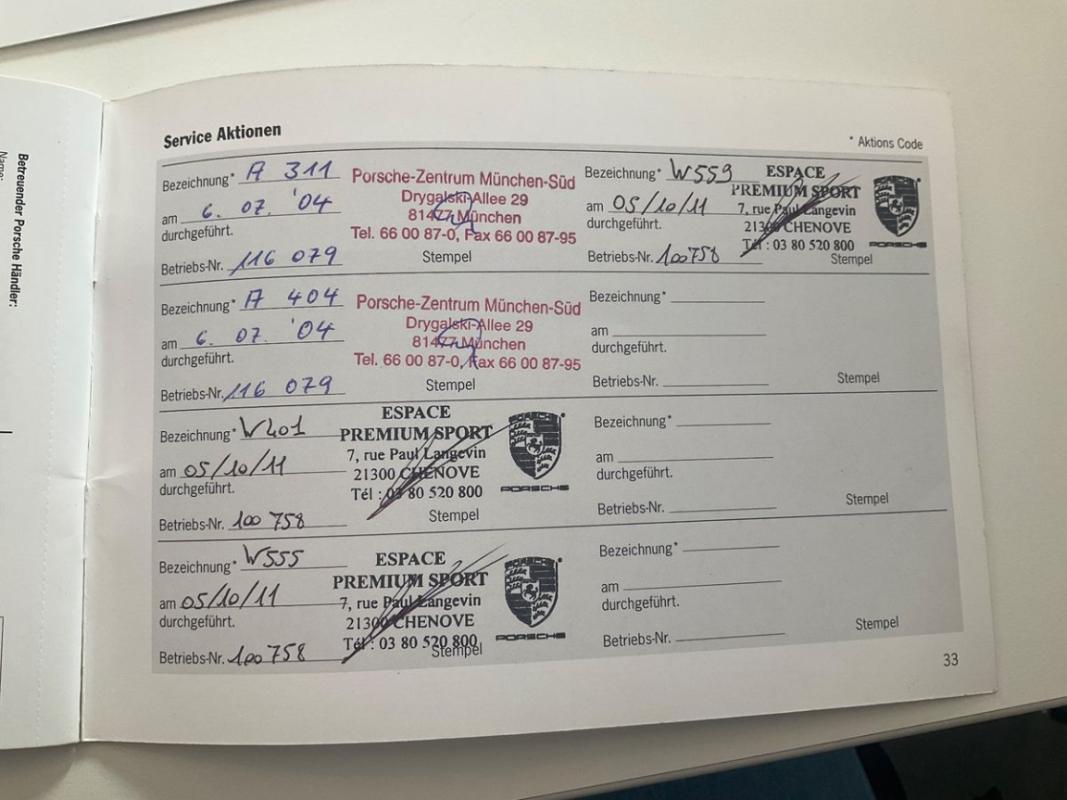 Betreuender Porsche Händler:
Name:
Service Aktionen
* Aktions Code
Bezeichnung* A 311
am 6. 07. '04
durchgeführt.
Betriebs-Nr. 116 079
Porsche-Zentrum München-Süd
Drygalski-Allee 29
81477 München
Tel. 66 00 87-0, Fax 66 00 87-95
Stempel
Bezeichnung* W559
am 05/10/11
durchgeführt.
Betriebs-Nr. 100758
ESPACE
PREMIUM SPORT
7, rue Paul Langevin
21300 CHENOVE
Tél : 03 80 520 800
PORSCHE
Stempel
Bezeichnung* A 404
am 6. 07. '04
durchgeführt.
Betriebs-Nr. 116 079
Porsche-Zentrum München-Süd
Drygalski-Allee 29
81477 München
Tel. 66 00 87-0, Fax 66 00 87-95
Stempel
Bezeichnung*
am
durchgeführt.
Betriebs-Nr.
Stempel
Bezeichnung* W401
am 05/10/11
durchgeführt.
Betriebs-Nr. 100 758
ESPACE
PREMIUM SPORT
7, rue Paul Langevin
21300 CHENOVE
Tél : 03 80 520 800
PORSCHE
PORSCHE
Stempel
Bezeichnung*
am
durchgeführt.
Betriebs-Nr.
Stempel
Bezeichnung* W555
am 05/10/11
durchgeführt.
Betriebs-Nr. 100 758
ESPACE
PREMIUM SPORT
7, rue Paul Langevin
21300 CHENOVE
Tél : 03 80 520 800
PORSCHE
PORSCHE
Stempel
Bezeichnung*
am
durchgeführt.
Betriebs-Nr.
Stempel
33